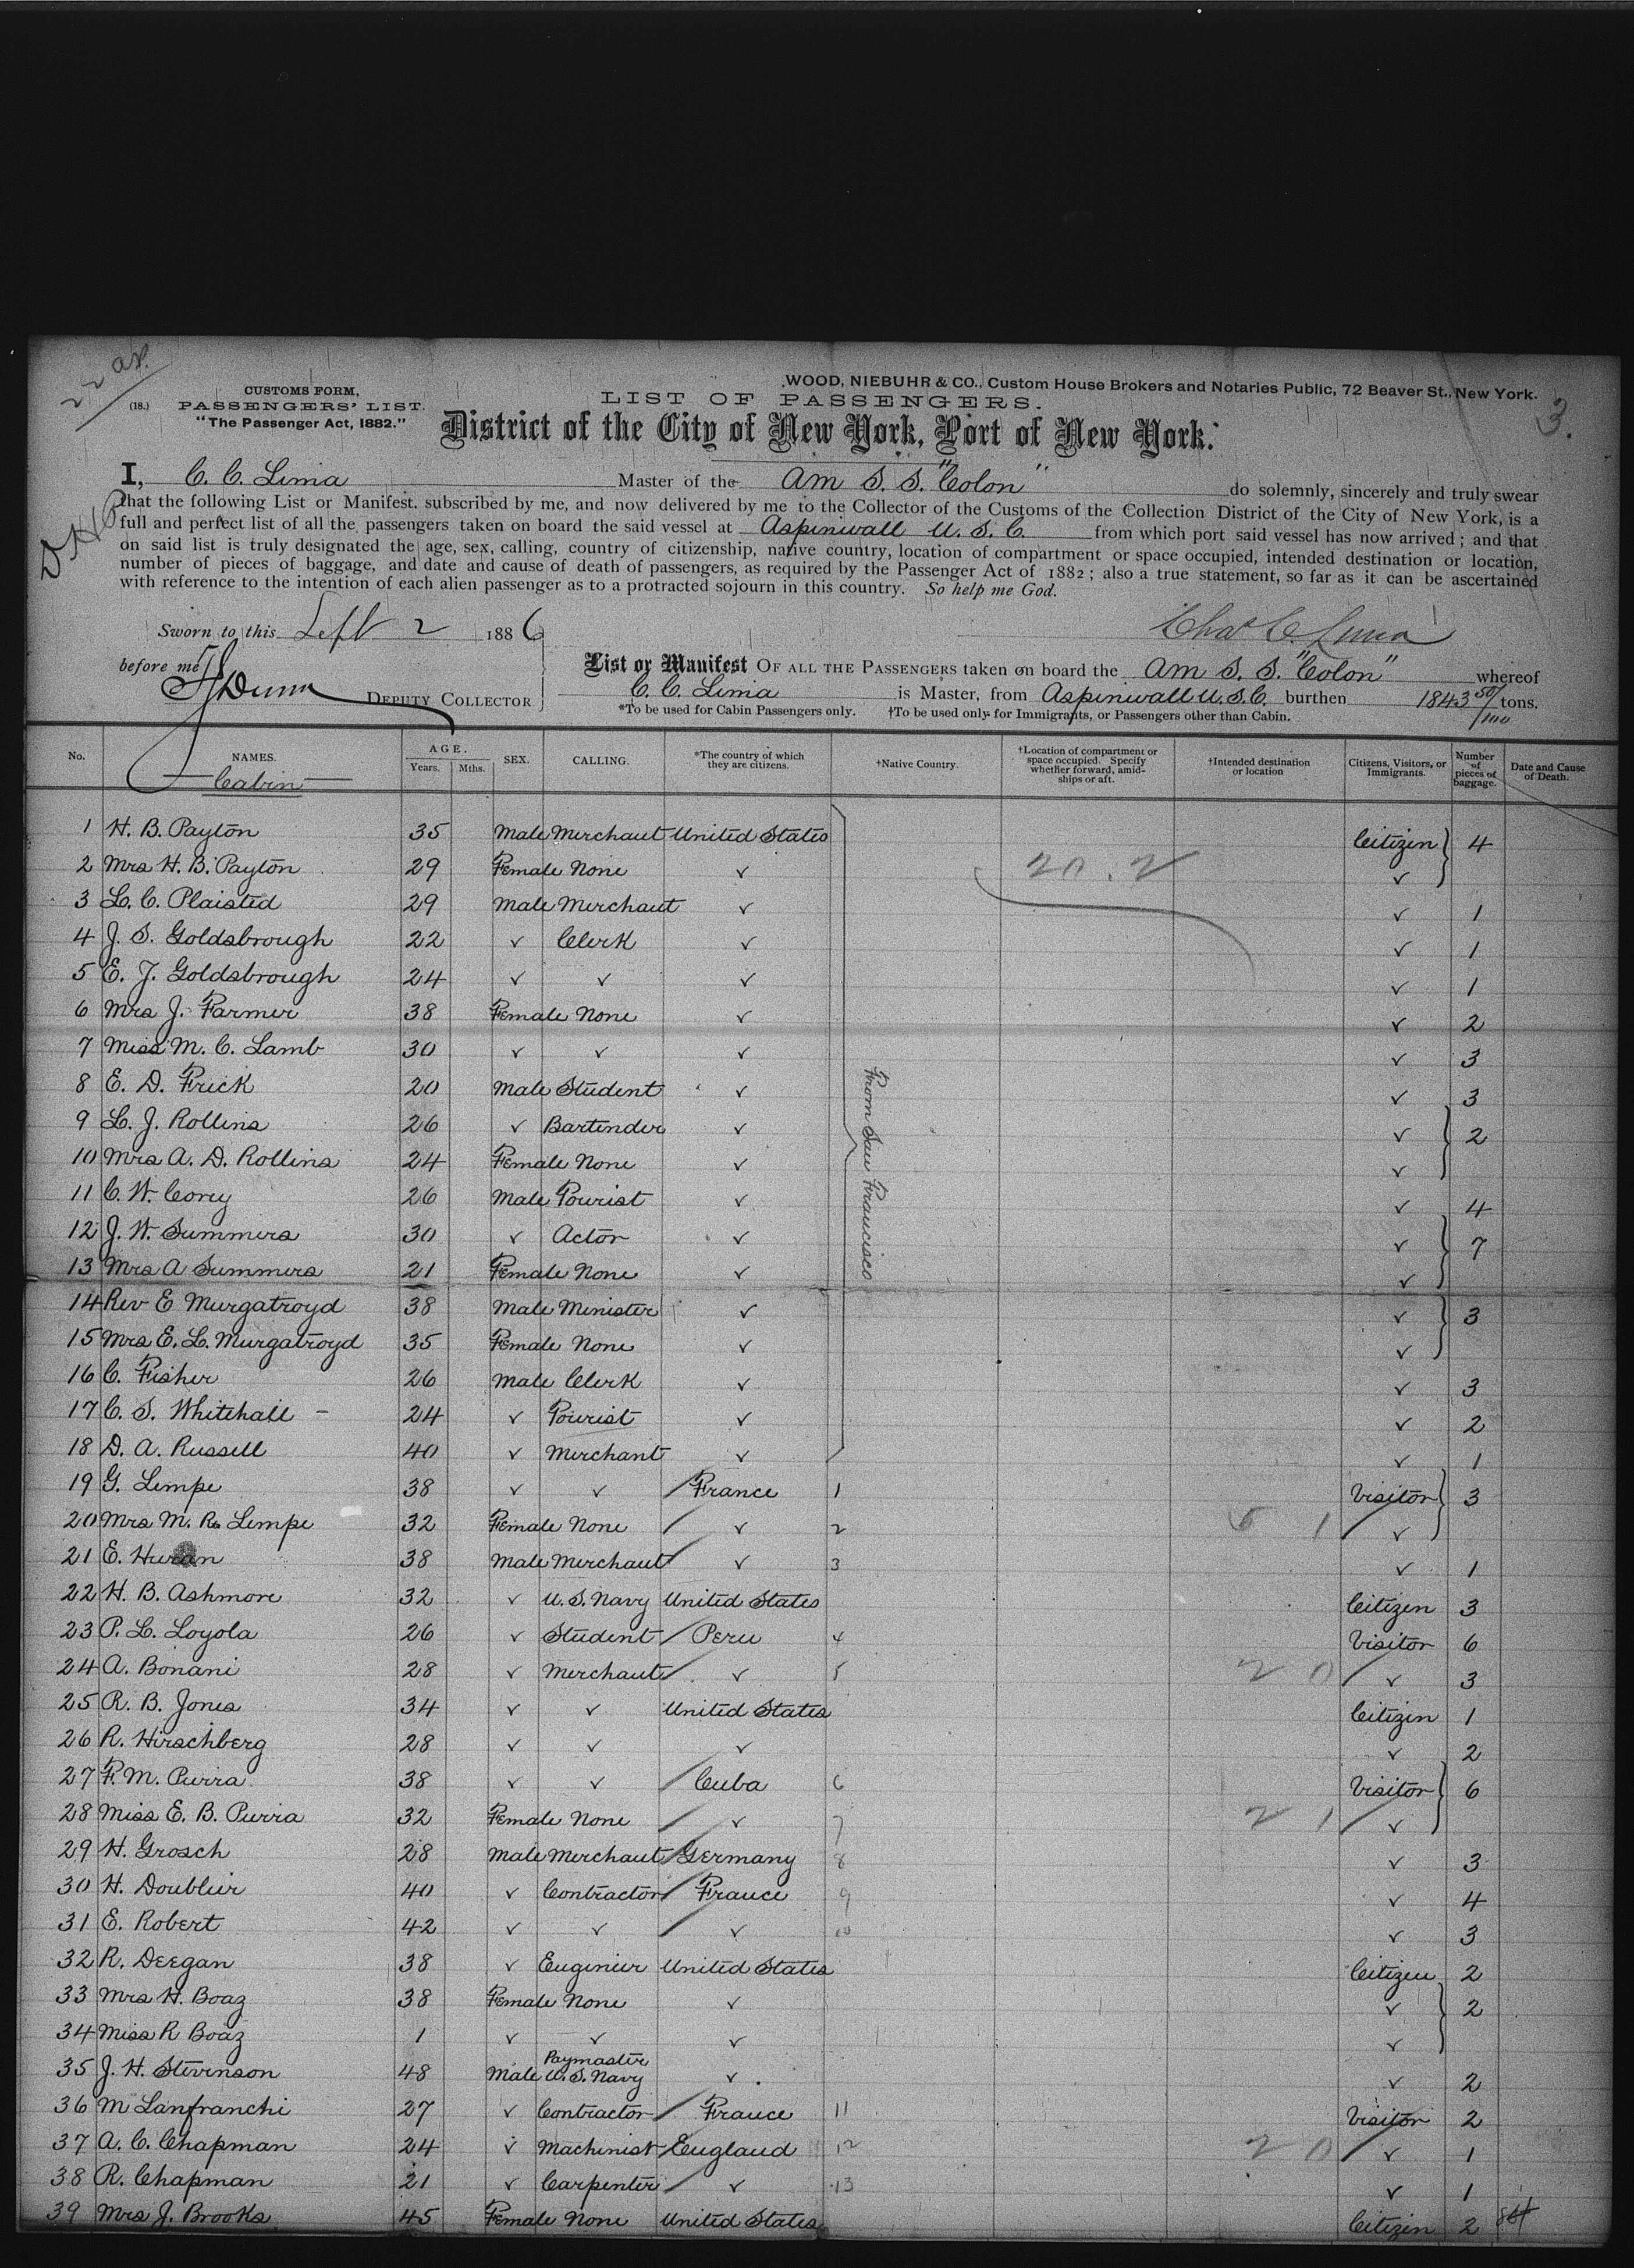 22 ax.
WOOD, NIEBUHR & CO., Custom House Brokers and Notaries Public, 72 Beaver St., New York.
CUSTOMS FORM,
LIST OF PASSENGERS.
(18.) PASSENGERS' LIST.
"The Passenger Act, 1882."
3.
District of the City of New York, Port of New York.
I, C. C. Lima Master of the Am S. S. "Colon" do solemnly, sincerely and truly swear
that the following List or Manifest, subscribed by me, and now delivered by me to the Collector of the Customs of the Collection District of the City of New York, is a
full and perfect list of all the passengers taken on board the said vessel at Aspinwall U. S. C. from which port said vessel has now arrived; and that
on said list is truly designated the age, sex, calling, country of citizenship, native country, location of compartment or space occupied, intended destination or location,
number of pieces of baggage, and date and cause of death of passengers, as required by the Passenger Act of 1882; also a true statement, so far as it can be ascertained
with reference to the intention of each alien passenger as to a protracted sojourn in this country. So help me God.
Sworn to this Sept 2 1886
Chas C Lima
before me
Dunn DEPUTY COLLECTOR
List or Manifest OF ALL THE PASSENGERS taken on board the Am S. S. "Colon" whereof
C. C. Lima is Master, from Aspinwall U.S.C. burthen 1843 50/100 tons.
*To be used for Cabin Passengers only. †To be used only for Immigrants, or Passengers other than Cabin.
No. NAMES. AGE. Years. Mths. SEX. CALLING. *The country of which they are citizens. †Native Country. †Location of compartment or space occupied. Specify whether forward, amidships or aft. †Intended destination or location Citizens, Visitors, or Immigrants. Number of pieces of baggage. Date and Cause of Death.
Cabin
1 H. B. Payton 35 Male Merchant United States Citizen 4
2 Mrs H. B. Payton 29 Female None ✓ 20.2 ✓
3 L. C. Plaisted 29 Male Merchant ✓ ✓ 1
4 J. S. Goldsbrough 22 ✓ Clerk ✓ ✓ 1
5 E. J. Goldsbrough 24 ✓ ✓ ✓ ✓ 1
6 Mrs J. Farmer 38 Female None ✓ ✓ 2
7 Miss M. C. Lamb 30 ✓ ✓ ✓ ✓ 3
8 E. D. Frick 20 Male Student ✓ ✓ 3
From San Francisco
9 L. J. Rollins 26 ✓ Bartender ✓ ✓ 2
10 Mrs A. D. Rollins 24 Female None ✓ ✓
11 C. W. Corey 26 Male Tourist ✓ ✓ 4
12 J. W. Summers 30 ✓ Actor ✓ ✓ 7
13 Mrs A Summers 21 Female None ✓ ✓
14 Rev E Murgatroyd 38 Male Minister ✓ ✓ 3
15 Mrs E. L. Murgatroyd 35 Female None ✓ ✓
16 C. Fisher 26 Male Clerk ✓ ✓ 3
17 C. S. Whitehall - 24 ✓ Tourist ✓ ✓ 2
18 D. A. Russell 40 ✓ Merchant ✓ ✓ 1
19 G. Lempe 38 ✓ ✓ France 1 Visitor 3
20 Mrs M. R. Lempe 32 Female None ✓ 2 1 ✓
21 E. Huran 38 Male Merchant ✓ 3 ✓ 1
22 H. B. Ashmore 32 ✓ U. S. Navy United States Citizen 3
23 P. L. Loyola 26 ✓ Student Peru 4 Visitor 6
24 A. Bonani 28 ✓ Merchant ✓ 5 2 0 ✓ 3
25 R. B. Jones 34 ✓ ✓ United States Citizen 1
26 R. Hirschberg 28 ✓ ✓ ✓ ✓ 2
27 F. M. Purra 38 ✓ ✓ Cuba 6 Visitor 6
28 Miss E. B. Purra 32 Female None ✓ 7 2 1 ✓
29 H. Grosch 28 Male Merchant Germany 8 ✓ 3
30 H. Doublier 40 ✓ Contractor France 9 ✓ 4
31 E. Robert 42 ✓ ✓ ✓ 10 ✓ 3
32 R. Deegan 38 ✓ Engineer United States Citizen 2
33 Mrs H. Boaz 38 Female None ✓ ✓ 2
34 Miss R Boaz 1 ✓ ✓ ✓ ✓
35 J. H. Stevenson 48 Male Paymaster U. S. Navy ✓ ✓ 2
36 M Lanfranchi 27 ✓ Contractor France 11 Visitor 2
37 A. C. Chapman 24 ✓ Machinist England 12 2 0 ✓ 1
38 R. Chapman 21 ✓ Carpenter ✓ 13 ✓ 1
39 Mrs J. Brooks 45 Female None United States Citizen 2